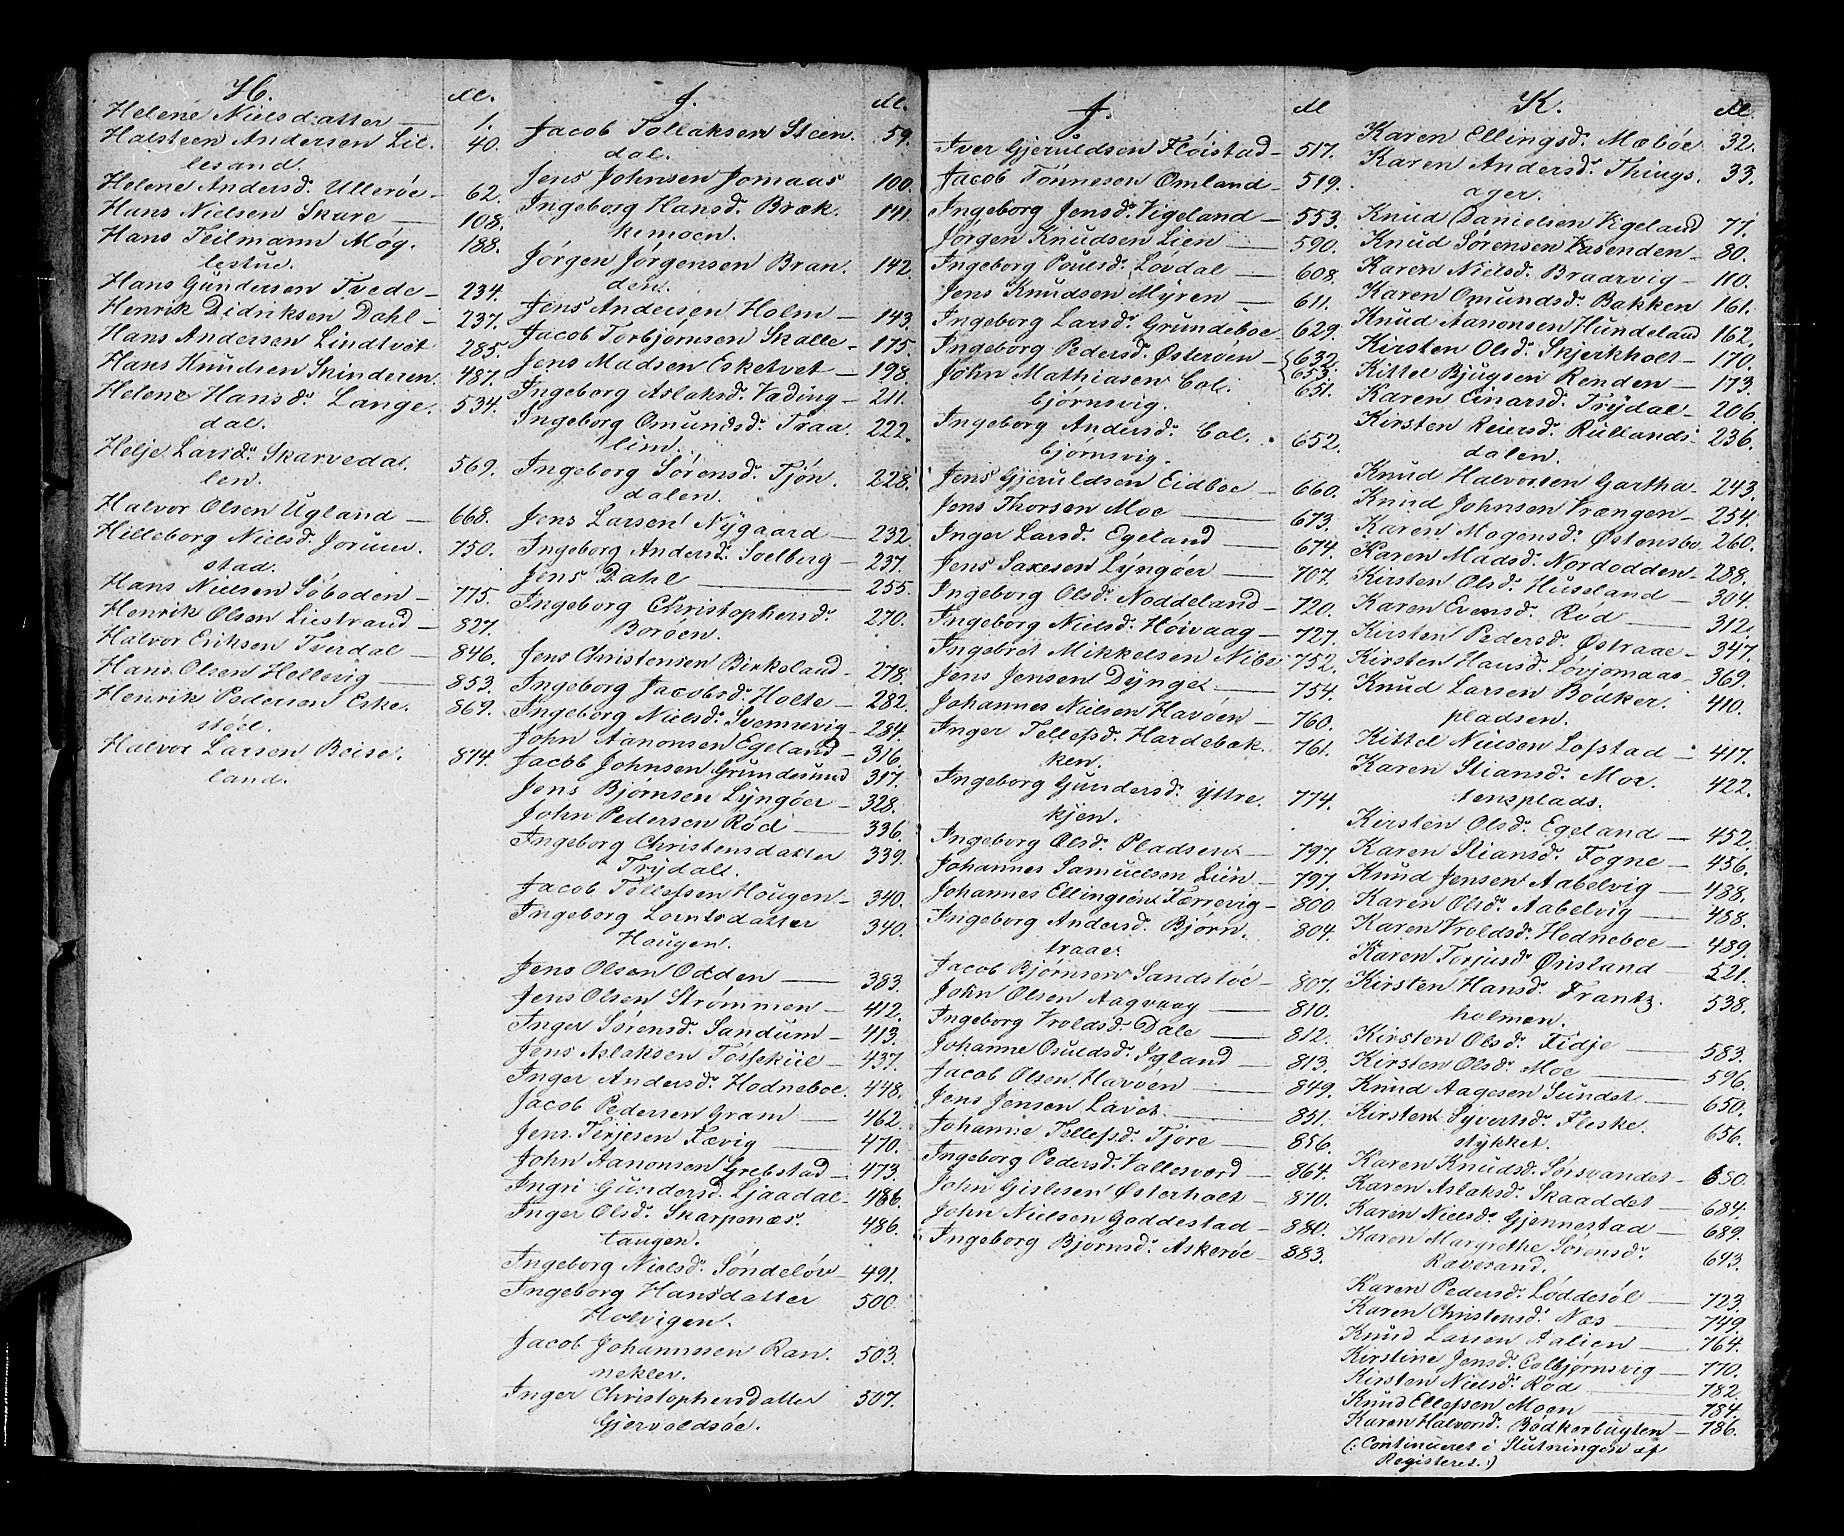 H. M.
Helene Nielsdatter — 1.
Halsteen Andersen Lil. 40.
lesand.
Helene Andersd. Ullerøe — 62.
Hans Nielsen Skare — 108.
Hans Teilmann Møg. 188.
lestue.
Hans Gundersen Tvede — 234.
Henrik Didriksen Dahl — 237.
Hans Andersen Lindtvet 285.
Hans Knudsen Skinderen. 487.
Helene Hansd. Lange. 534.
dal.
Helje Larsd. Skarveda. 569.
len.
Halvor Olsen Ugland — 668.
Hilleborg Nielsd. Jorun. 750.
stad.
Hans Nielsen Søboden — 775.
Henrik Olsen Liestrand — 827.
Halvor Eriksen Tverdal — 846.
Hans Olsen Hellevig — 853.
Henrik Pedersen Eske. 869.
støl.
Halvor Larsen Boise. 874.
land.
J. M.
Jacob Tollaksen Steen. 59.
dal.
Jens Johnsen Jomaas 100.
Ingeborg Hansd. Bræk. 141.
kemoen.
Jørgen Jørgensen Bran. 142.
den.
Jens Andersen Holm — 143.
Jacob Torbjørnsen Skalle — 175.
Jens Madsen Esketvet — 198.
Ingeborg Aslaksd. Vading — 211.
Ingeborg Omundsd. Traa 222.
lim.
Ingeborg Sørensd. Tjøn. 228.
dalen.
Jens Larsen Nygaard — 232
Ingeborg Andersd. Soelberg — 237.
Jens Dahl — 255.
Ingeborg Christophersd. 270.
Borøen.
Jens Christensen Birkeland — 278.
Ingeborg Jacobsd. Holte — 282.
Ingeborg Nielsd. Svennevig — 284.
John Aanonsen Egeland — 316.
Jacob Johnsen Grundesund 317.
Jens Bjørnsen Lyngøer — 328.
John Pedersen Rød — 336.
Ingeborg Christensdatter 339.
Trydal.
Jacob Tellefsen Hougen — 340.
Ingeborg Lorntsdatter 340.
Haugen.
Jens Olsen Odden — 383.
Jens Olsen Strømmen — 412.
Inger Sørensd. Sandum — 413.
Jens Aslaksen — 437.
Inger Andersd. Hodneboe. 448.
Jacob Pedersen Gram — 462.
Jens Terjesen Fævig — 470.
John Aanonsen Grebstad — 473.
Ingri Gundersd. Ljaadal — 486.
Inger Olsd. Skarpenæs. 486.
taugen.
Ingeborg Nielsd. Søndeløv — 491.
Ingeborg Hansdatter 500.
Holvigen.
Jacob Johannesen Ran. 503.
nekler.
Inger Christophersdatter 507.
Gjervoldsøe.
J. M
Iver Gjeruldsen Fløistad — 517.
Jacob Tønnesen Omland — 519.
Ingeborg Jensd. Vigeland — 553.
Jørgen Knudsen Lien — 590.
Ingeborg Poulsd. Løvdal — 608.
Jens Knudsen Myren — 611.
Ingeborg Larsd. Grundeboe 629.
Ingeborg Pedersd. Østerøen — 632.
653.
John Mathiasen Col. 651.
bjørnsvig.
Ingeborg Andersd. Col. 652.
bjørnsvig.
Jens Gjeruldsen Eidboe — 660.
Jens Thorsen Moe — 673.
Inger Larsd. Egeland — 674.
Jens Saxesen Lyngøer — 707.
Ingeborg Olsd. Noddeland — 720.
Ingeborg Nielsd. Høivaag — 727.
Ingebret Mikkelsen Nibe 752.
Jens Jensen Dynge — 754.
Johannes Nielsen Havøen — 760.
Inger Tellefsd. Hardebæk. 761.
ken.
Ingeborg Gundersd. Yttre. 774.
kjen.
Ingeborg Olsd. Pladsen — 797.
Johannes Samuelsen Lien — 797.
Johannes Ellingsen Færrevig — 800.
Ingeborg Andersd. Bjørn. 804.
traae.
Jacob Bjørnsen Sandstøe — 807.
John Olsen Aagvaag — 810.
Ingeborg Vroldsd. Dale — 812.
Johanne Osuldsd. Igland — 813.
Jacob Olsen Havøen — 849.
Jens Jensen Lavet — 851.
Johanne Tellefsd. Tjore — 856.
Ingeborg Pedersd. Vallesværd — 864.
John Gislesen Østerholt — 870.
John Nielsen Goddestad — 880.
Ingeborg Bjørnsd. Askerøe — 883.
K. M.
Karen Ellingsd. Mæbøe 32.
Karen Andersd. Things. 33.
ager.
Knud Danielsen Vigeland 77.
Knud Sørensen Vasenden — 80.
Karen Nielsd. Braarvig — 110.
Karen Omundsd. Bakken 161.
Knud Aanonsen Hundeland 162.
Kirsten Olsd. Skjerkholt — 170.
Kittel Bjugsen Renden — 173.
Karen Einarsd. Trydal — 206.
Kirsten Reiersd. Rullands. 236.
dalen.
Knud Halvorsen Gartha — 243.
Knud Johnsen Vrængen — 254.
Karen Mogensd. Østensbo 260.
Karen Madsd. Nordodden — 288.
Kirsten Olsd. Huseland — 304.
Karen Evensd. Rød — 312.
Kirsten Pedersd. Østraae — 347.
Kirsten Hansd. Lovjomaas — 369.
Knud Larsen Bødker. 410.
pladsen.
Kittel Nielsen Lofstad — 417.
Karen Stiansd. Mor. 422.
tensplads.
Kirsten Olsd. Egeland — 452.
Karen Stiansd. Fogne — 456.
Knud Jensen Aabelvig — 488.
Karen Olsd. Aabelvig — 488.
Karen Vroldsd. Hodneboe — 489.
Karen Torjusd. Ørisland — 521.
Kirsten Hansd. Frantz. 538.
holmen.
Kirsten Olsd. Fidje — 583.
Kirsten Olsd. Moe — 596.
Knud Aagesen Sundet — 650.
Kirsten Syvertsd. Fleske. 656.
stykket.
Karen Knudsd. Sørsvandet — 680.
Karen Aslaksd. Skaaddet — 684.
Karen Nielsd. Gjennestad — 689.
Karen Margrethe Sørensd. 693.
Ravesand.
Karen Pedersd. Løddesøl — 723.
Karen Christensd. Næs — 749.
Knud Larsen Aalien — 764.
Kirstine Jensd. Colbjørnsvig — 770.
Kirsten Nielsd. Rød — 782.
Knud Ellefsen Moen — 784.
Karen Halvorsd. Bødkerbugten — 786.
(: Continueret i Slutningen af
Registeret. :)